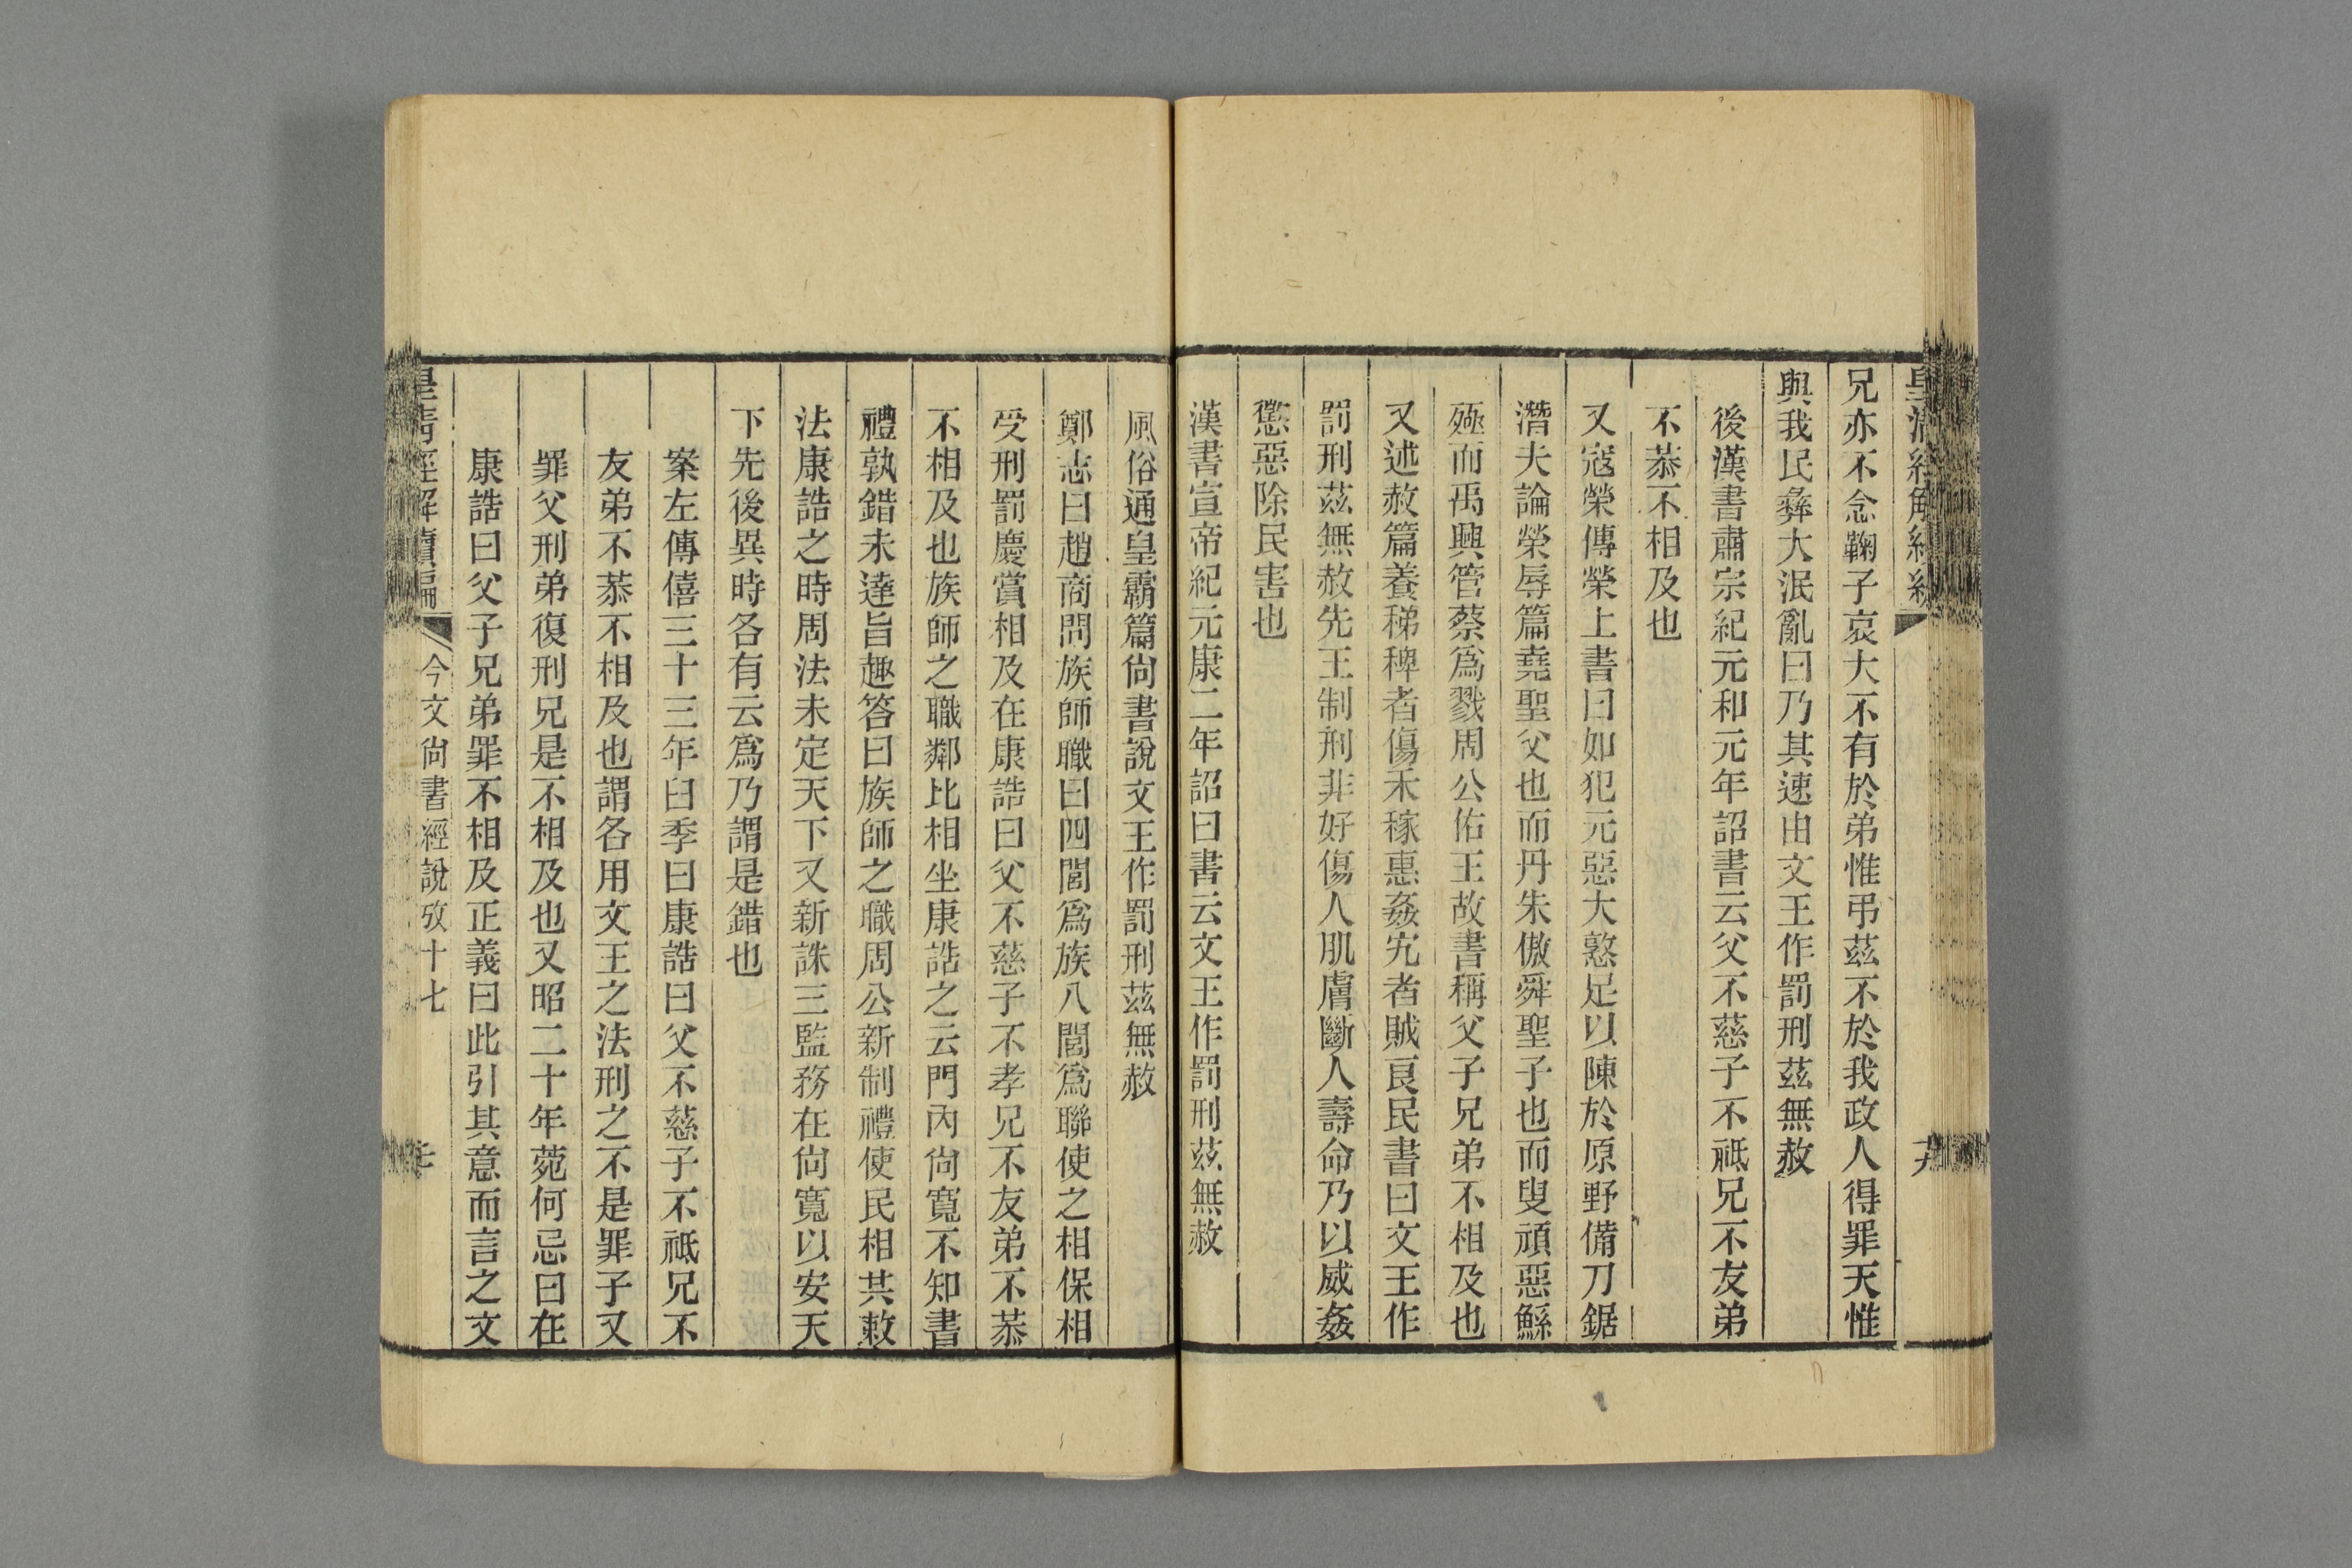 兄亦不念鞠子哀大不有於弟惟弔茲不於我政人得罪天惟
與我民彝大泯亂曰乃其速由文王作罰刑茲無赦
後漢書肅宗紀元和元年詔書云父不慈子不祗兄不友弟
不恭不相及也
又寇榮傳榮上書曰如犯元惡大憝足以陳於原野備刀鋸
潛夫論榮辱篇堯聖父也而丹朱傲舜聖子也而叟頑惡鯀
殛而禹興管蔡爲戮周公佑王故書稱父子兄弟不相及也
又述赦篇養稊稗者傷禾稼惠姦宄者賊良民書曰文王作
罰刑茲無赦先王制刑非好傷人肌膚斷人壽命乃以威姦
懲惡除民害也
漢書宣帝紀元康二年詔曰書云文王作罰刑茲無赦
風俗通皇霸篇尙書說文王作罰刑茲無赦
鄭志曰趙商問族師職曰四閭爲族八閭爲聯使之相保相
受刑罰慶賞相及在康誥曰父不慈子不孝兄不友弟不恭
不相及也族師之職鄰比相坐康誥之云門內尙寬不知書
禮孰錯未達旨趣答曰族師之職周公新制禮使民相共敕
法康誥之時周法未定天下又新誅三監務在尙寬以安天
下先後異時各有云爲乃謂是錯也
案左傳僖三十三年臼季曰康誥曰父不慈子不祗兄不
友弟不恭不相及也謂各用文王之法刑之不是罪子又
罪父刑弟復刑兄是不相及也又昭二十年菀何忌曰在
康誥曰父子兄弟罪不相及正義曰此引其意而言之文
皇清經解續編 今文尙書經說攷十七